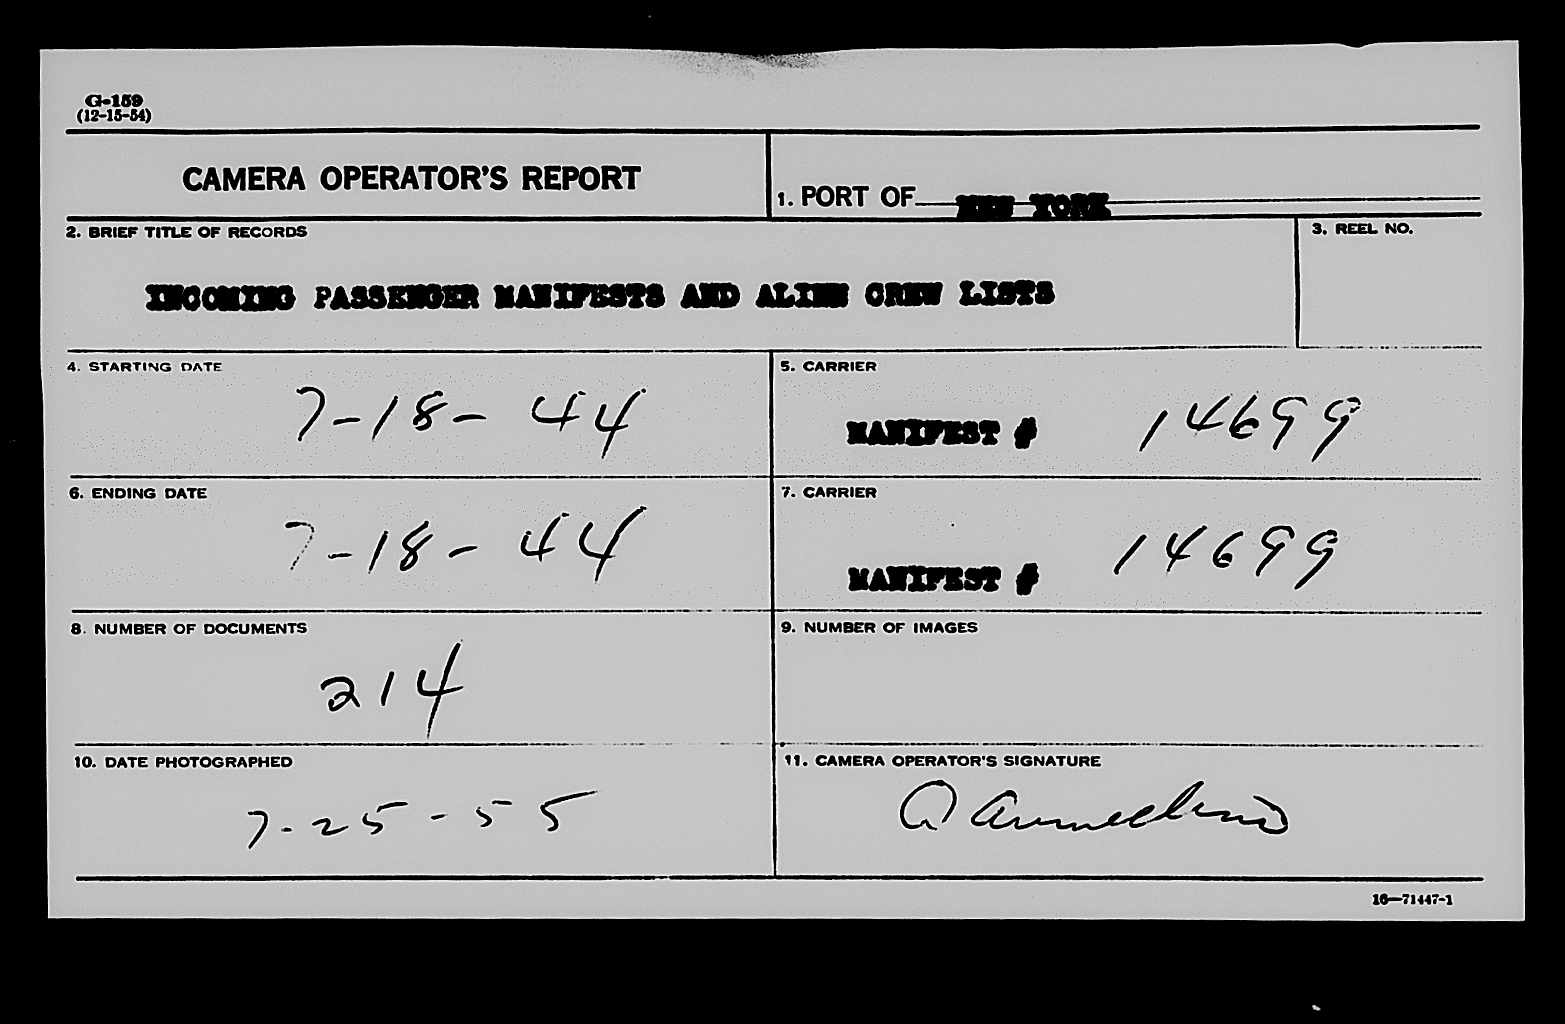 G-159
(12-15-54)
CAMERA OPERATOR'S REPORT
1. PORT OF NEW YORK
2. BRIEF TITLE OF RECORDS
3. REEL NO.
INCOMING PASSENGER MANIFESTS AND ALIEN CREW LISTS
4. STARTING DATE
7-18-44
5. CARRIER
MANIFEST # 14699
6. ENDING DATE
7-18-44
7. CARRIER
MANIFEST # 14699
8. NUMBER OF DOCUMENTS
214
9. NUMBER OF IMAGES
10. DATE PHOTOGRAPHED
7-25-55
11. CAMERA OPERATOR'S SIGNATURE
16—71447-1